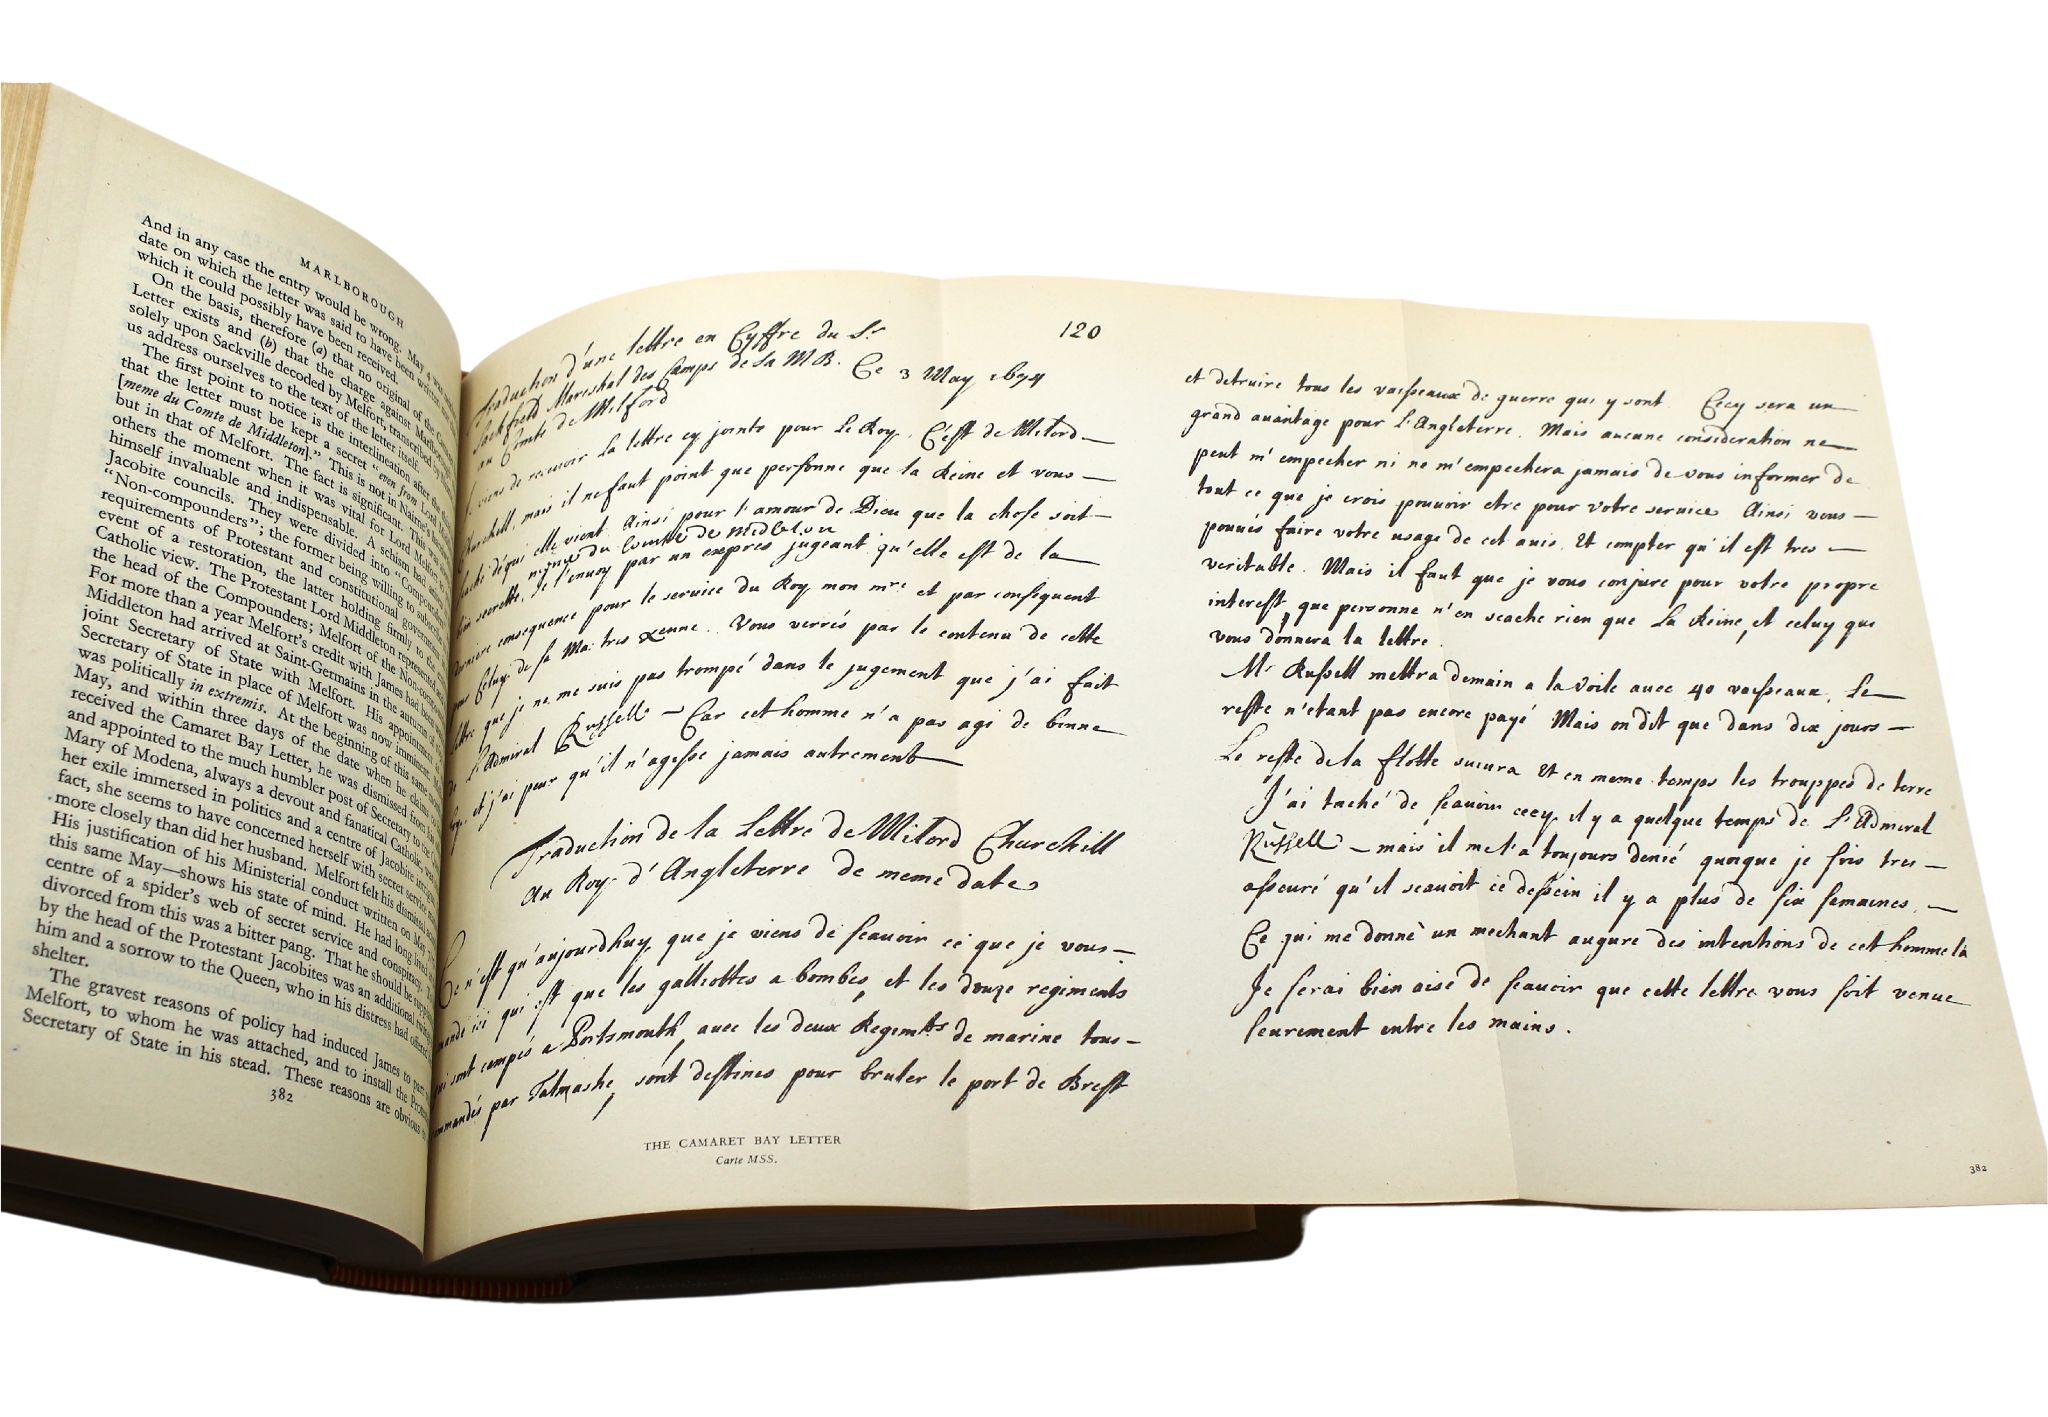 MARLBOROUGH
And in any case the entry would be wrong. May 4 was
date on which the letter was said to have been written
which it could possibly have been received.
On the basis, therefore (a) that no original of the
Letter exists and (b) that the charge against
solely upon Sackville decoded by Melfort, transcribed by
us address ourselves to the text of the letter itself.
The first point to notice is the interlineation after the
that the letter must be kept a secret “even from Lord
[meme du Comte de Middleton].” This is not in Nairne's
but in that of Melfort. The fact is significant. This was
others the moment when it was vital for Lord Melfort to
himself invaluable and indispensable. A schism had
Jacobite councils. They were divided into “Compounders”
“Non-compounders”; the former being willing to subscribe
requirements of Protestant and constitutional government
event of a restoration, the latter holding firmly to the
Catholic view. The Protestant Lord Middleton represented
the head of the Compounders; Melfort of the
For more than a year Melfort's credit with James had been
Middleton had arrived at Saint-Germains in the autumn of
joint Secretary of State with Melfort. His appointment
Secretary of State in place of Melfort was now imminent.
was politically in extremis. At the beginning of this same
May, and within three days of the date when he claims to
received the Camaret Bay Letter, he was dismissed from his
and appointed to the much humbler post of Secretary to the
Mary of Modena, always a devout and fanatical Catholic, was
her exile immersed in politics and a centre of Jacobite
fact, she seems to have concerned herself with secret service
more closely than did her husband. Melfort felt his dismissal
His justification of his Ministerial conduct written on May
this same May—shows his state of mind. He had long lived
centre of a spider's web of secret service and conspiracy.
divorced from this was a bitter pang. That he should be
by the head of the Protestant Jacobites was an additional
him and a sorrow to the Queen, who in his distress had offered
shelter.
The gravest reasons of policy had induced James to part
Melfort, to whom he was attached, and to install the
Secretary of State in his stead. These reasons are obvious
382
120
Traduction d'une lettre en Cyffre du Sr
Sackfield Mareshal des Camps de sa M B. Ce 3 May 1694
au Comte de Melford
Je viens de recevoir la lettre cy jointe pour Le Roy. C'est de Milord—
Churchill, mais il ne faut point que personne que la Reine et vous—
sache de qui elle vient. Ainsi pour l'amour de Dieu que la chose soit—
meme du Comte de Midleton
bien secrette. Je l'envoy par un expres jugeant qu'elle est de la
derniere consequence pour le service du Roy mon mre et par consequent
pour Celuy de sa Ma: tres Xenne. Vous verrés par le contenu de cette
lettre que je ne me suis pas trompé dans le jugement que j'ai fait
de l'Admiral Russell — Car cet homme n'a pas agi de bonne
foy, et j'ai peur qu'il n'agisse jamais autrement—
Traduction de la Lettre de Milord Churchill
au Roy d'Angleterre de meme date
Ce n'est qu'aujourdhuy que je viens de scavoir ce que je vous—
mande ici qui est que les galliottes a bombes, et les douze regiments
qui sont campés a Portsmouth, avec les deux Regemts de marine tous—
commandés par Talmashe, sont destines pour bruler le port de Brest
THE CAMARET BAY LETTER
Carte MSS.
et detruire tous les vaisseaux de guerre qui y sont. Cecy sera un—
grand avantage pour L'Angleterre. Mais aucune consideration ne—
peut m'empecher ni ne m'empechera jamais de vous informer de
tout ce que je crois pouvoir etre pour votre service. Ainsi vous—
pouvés faire votre usage de cet avis, et compter qu'il est tres—
veritable. Mais il faut que je vous conjure pour votre propre
interest, que personne n'en scache rien que La Reine, et celuy que
vous donnera la lettre.
Mr Russell mettra demain a la voile avec 40 vaisseaux, Le—
reste n'etant pas encore payé Mais on dit que dans dix jours—
Le reste de la flotte suivra et en meme temps les trouppes de terre
J'ai taché de scavoir cecy il y a quelque temps de L'Admiral
Russell — mais il me l'a toujours denié quoique je sois tres—
asseuré qu'il scavoit ce dessein il y a plus de six semaines.—
Ce qui me donne un mechant augure des intentions de cet homme la
Je serai bien aise de scavoir que cette lettre vous soit venue
seurement entre les mains.
382